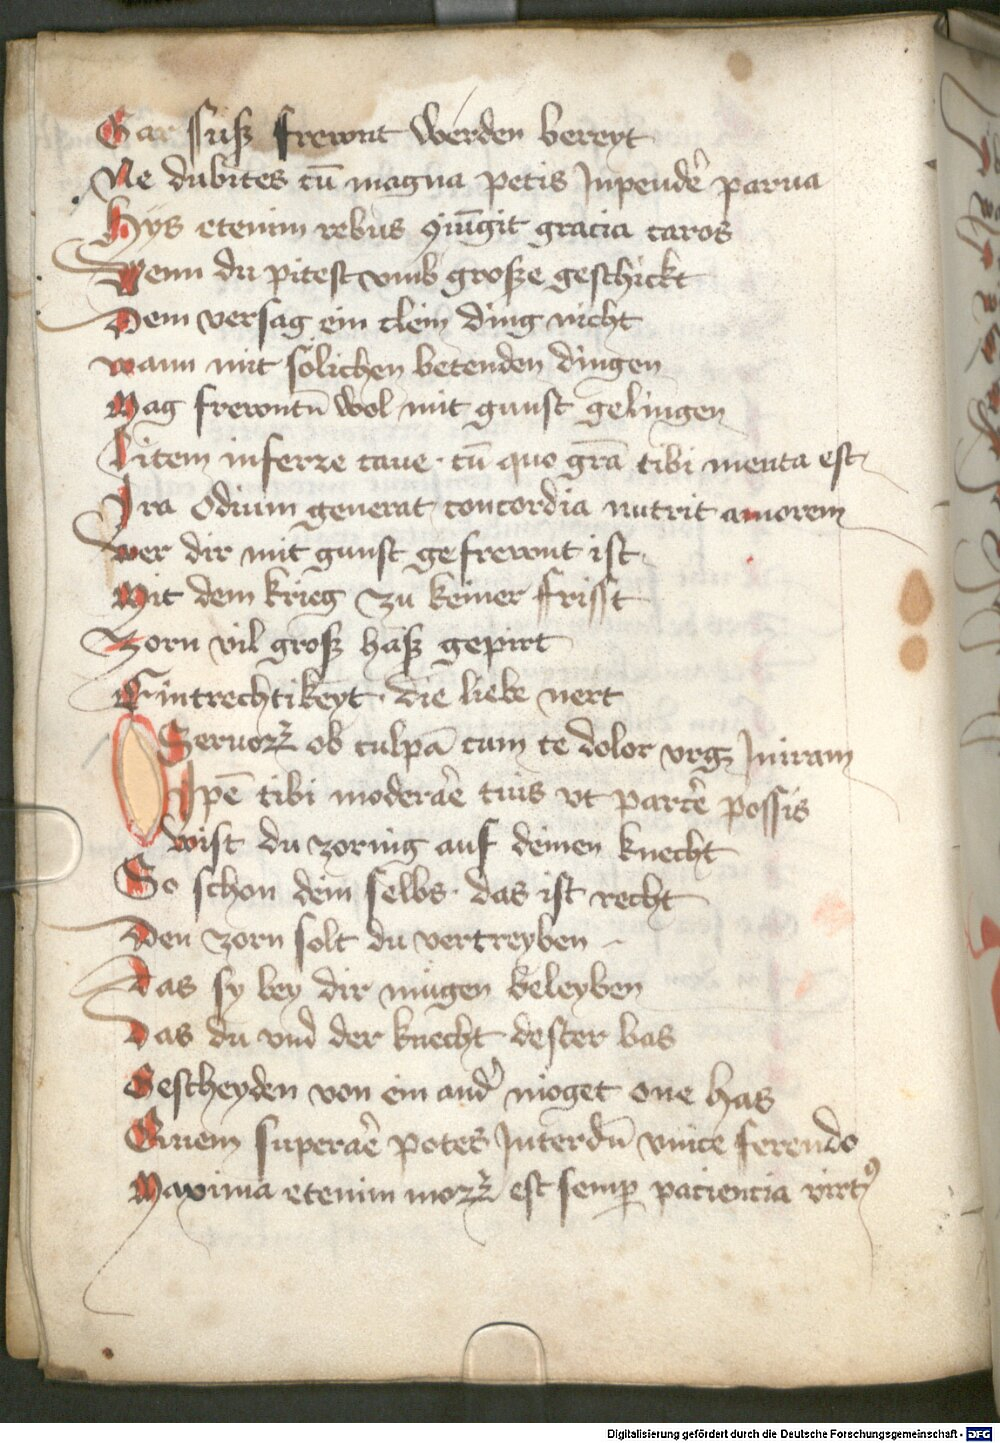 Gar suß frewnt werden bereyt
Ne dubites cū magna petis Inpendē parua
Hys etenim rebus ꝯiūgit gracia caros
Wenn du pitest vmb große geschickt
Dem versag ein clein ding nicht
wann mit sölichen betenden dingen
Mag frewntū wol mit gunst gelingen
Litem inferre caue · cū quo grā tibi iuncta est
Ira Odium generat concordia nutrit amorem
wer dir mit gunst gefrewnt ist
Mit dem krieg zu keiner frisst
Zorn vil groß haß gepirt
Eintrechtikeyt · die liebe nert
Seruoꝝ ob culpā cum te dolor vrgꝫ In iram
Ipē tibi moderaē tuis vt parcē possis
wist du zornig auf deinen knecht
So schon dein selbs · das ist recht
Den zorn solt du vertreyben
Das sy bey dir mügen beleyben
Das du vnd der knecht dester bas
Gescheyden von ein and' moget one has
Quem superaē potes Interdū vince ferendo
Maxima etenim moꝝ est semꝑ paciencia virtꝰ
Digitalisierung gefördert durch die Deutsche Forschungsgemeinschaft · DFG